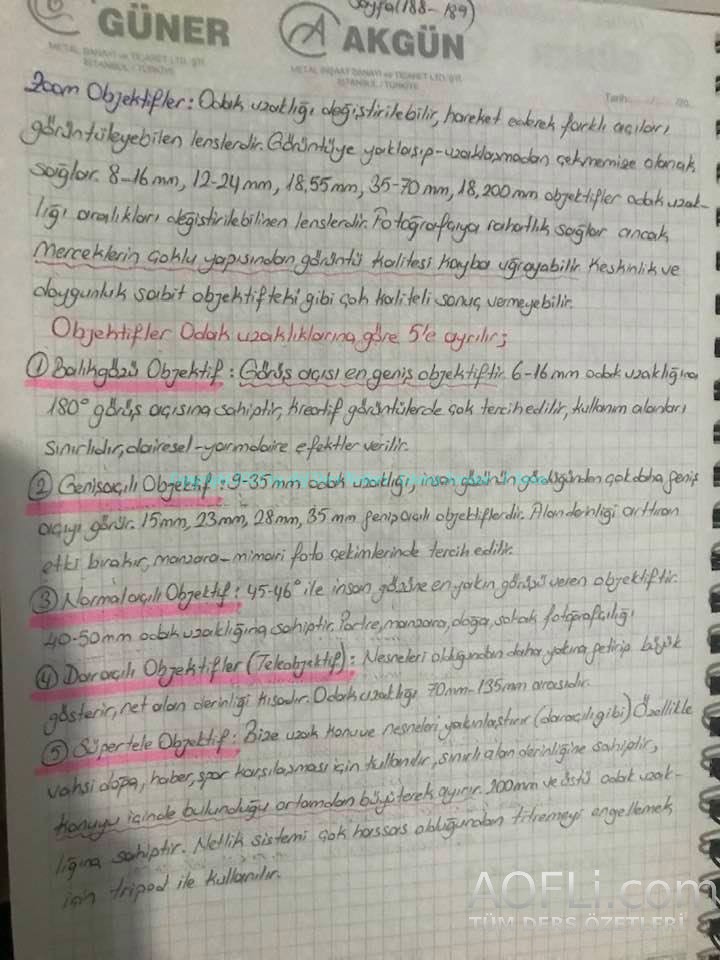 Sayfa(188-189)
GÜNER
METAL SANAYİ ve TİCARET LTD. ŞTİ.
İSTANBUL / TÜRKİYE
A AKGÜN
METAL İNŞAAT SANAYİ ve TİCARET LTD. ŞTİ.
İSTANBUL / TÜRKİYE
Tarih:
Zoom Objektifler: Odak uzaklığı değiştirilebilir, hareket ederek farklı açıları
görüntüleyebilen lenslerdir. Görüntüye yaklaşıp-uzaklaşmadan çekmemize olanak
sağlar. 8-16 mm, 12-24 mm, 18,55 mm, 35-70 mm, 18,200 mm objektifler odak uzak-
lığı aralıkları değiştirilebilinen lenslerdir. Fotoğrafçıya rahatlık sağlar ancak
Merceklerin çoklu yapısından görüntü kalitesi kayba uğrayabilir. Keskinlik ve
doygunluk sabit objektifteki gibi çok kaliteli sonuç vermeyebilir.
Objektifler Odak uzaklıklarına göre 5'e ayrılır;
① Balıkgözü Objektif: Görüş açısı en geniş objektiftir. 6-16 mm odak uzaklığına
180° görüş açısına sahiptir, kreatif görüntülerde çok tercih edilir, kullanım alanları
sınırlıdır, dairesel-yarımdaire efektler verilir.
② Genişaçılı Objektif: 9-35mm odak uzaklığı, insan gözünün gördüğünden çok daha geniş
açıyı görür. 15mm, 23mm, 28mm, 35 mm genişaçılı objektiflerdir. Alan derinliği arttıran
etki bırakır, manzara-mimari foto çekimlerinde tercih edilir.
③ Normalaçılı Objektif: 45-46° ile insan gözüne en yakın görüşü veren objektiftir.
40-50mm odak uzaklığına sahiptir. Portre, manzara, doğa, sokak fotoğrafçılığı
④ Daraçılı Objektifler (Teleobjektif): Nesneleri olduğundan daha yakına getirip büyük
gösterir, net alan derinliği kısadır. Odak uzaklığı 70mm-135mm arasıdır.
⑤ Süpertele Objektif: Bize uzak konu ve nesneleri yakınlaştırır (daraçılı gibi) Özellikle
vahşi doğa, haber, spor karşılaşması için kullanılır, sınırlı alan derinliğine sahiptir,
konuyu içinde bulunduğu ortamdan büyüterek ayırır. 200mm ve üstü odak uzak-
lığına sahiptir. Netlik sistemi çok hassas olduğundan titremeyi engellemek
için tripod ile kullanılır.
AOFLi.com
TÜM DERS ÖZETLERİ